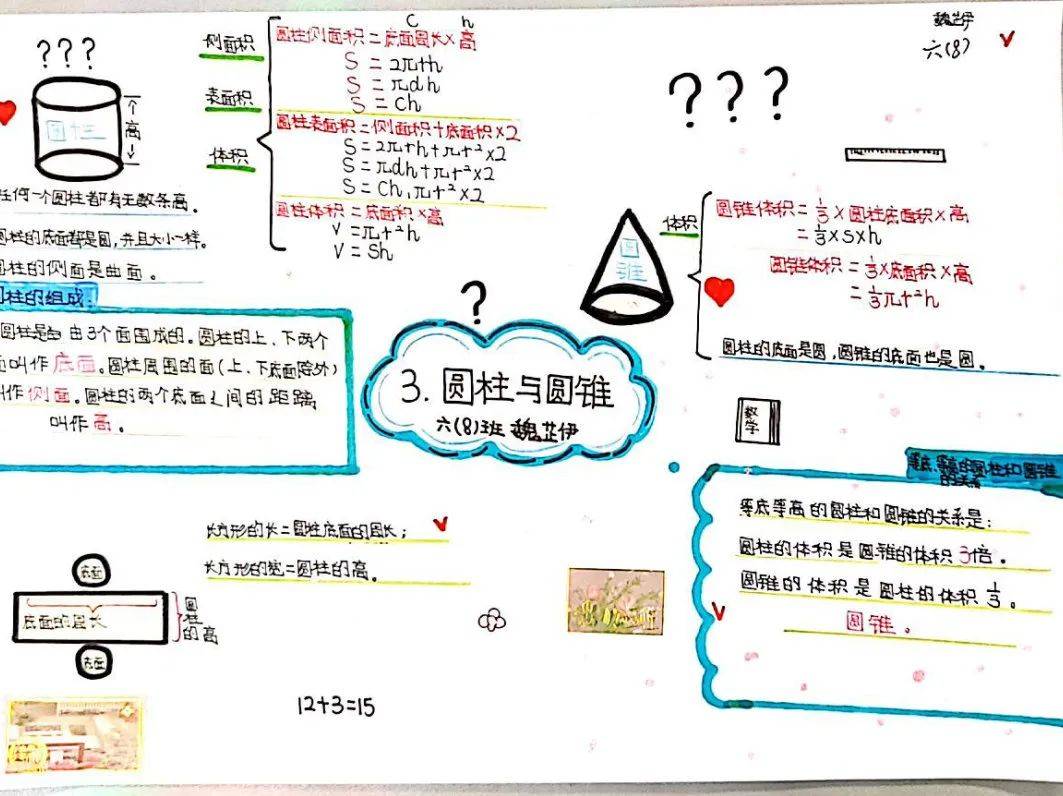 魏芷伊
六(8)
? ? ?
圆柱
高
侧面积
表面积
体积
C h
圆柱侧面积=底面周长×高
S=2πrh
S=πdh
S=Ch
圆柱表面积=侧面积+底面积×2
S=2πrh+πr²×2
S=πdh+πr²×2
S=Ch,πr²×2
圆柱体积=底面积×高
V=πr²h
V=Sh
任何一个圆柱都有无数条高。
圆柱的底面都是圆,并且大小一样。
圆柱的侧面是曲面。
圆柱的组成:
圆柱是由3个面围成的。圆柱的上、下两个
面叫作底面。圆柱周围的面(上、下底面除外)
叫作侧面。圆柱的两个底面之间的距离
叫作高。
?
3. 圆柱与圆锥
六(8)班 魏芷伊
? ? ?
圆锥
体积
圆锥体积=1/3×圆柱底面积×高
=1/3×S×h
圆锥体积=1/3×底面积×高
=1/3πr²h
圆柱的底面是圆,圆锥的底面也是圆。
数学
等底、等高的圆柱和圆锥
的关系
等底等高的圆柱和圆锥的关系是:
圆柱的体积是圆锥的体积3倍。
圆锥的体积是圆柱的体积1/3。
圆锥。
长方形的长=圆柱底面的周长;
长方形的宽=圆柱的高。
底面
底面的周长
圆柱的高
底面
12+3=15